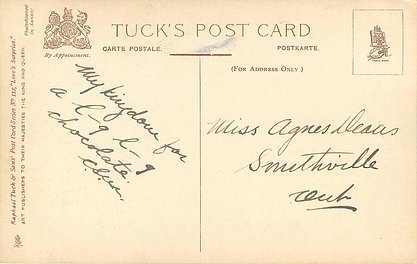 TUCK'S POST CARD
CARTE POSTALE.
POSTKARTE.
By Appointment.
(FOR ADDRESS ONLY)
Raphael Tuck & Sons' Post Card Series
"Love's Surprise"
ART PUBLISHERS TO THEIR MAJESTIES THE KING AND QUEEN.
Photochromed in Saxony
My kingdom for
a l-g l-g
chocolate.
Miss Agnes Deans
Smithville
Ont